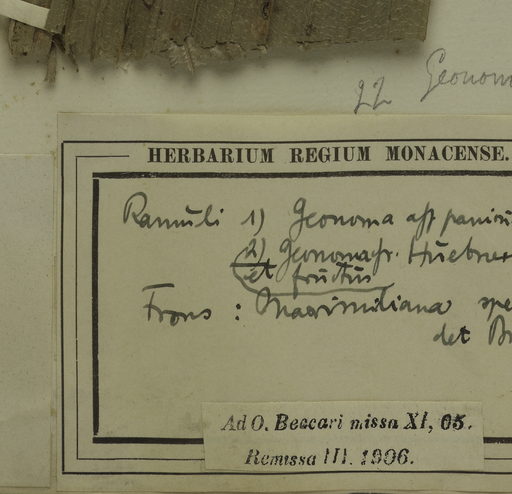 22 Geonom
HERBARIUM REGIUM MONACENSE.
Ramuli 1) Geonoma aff panicu
2) Geonoma fr. Huebner
et fructus
Frons : Maximiliana spe
det Br
Ad O. Beccari missa XI, 05.
Remissa III. 1906.